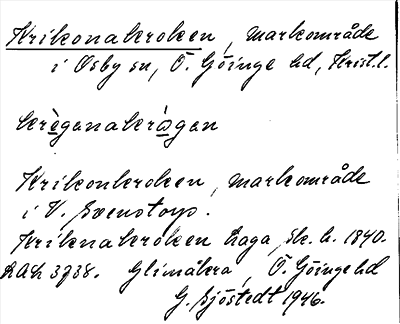 Krikonakroken, markområde
i Osby sn, Ö. Göinge hd, Krist.l.
krèganakrågan
Krikonkroken, markområde
i V. Svenstorp.
Kriknakroken Laga sk. h. 1840.
RAÄ 3938. Glimåkra, Ö. Göinge hd
G. Sjöstedt 1946.